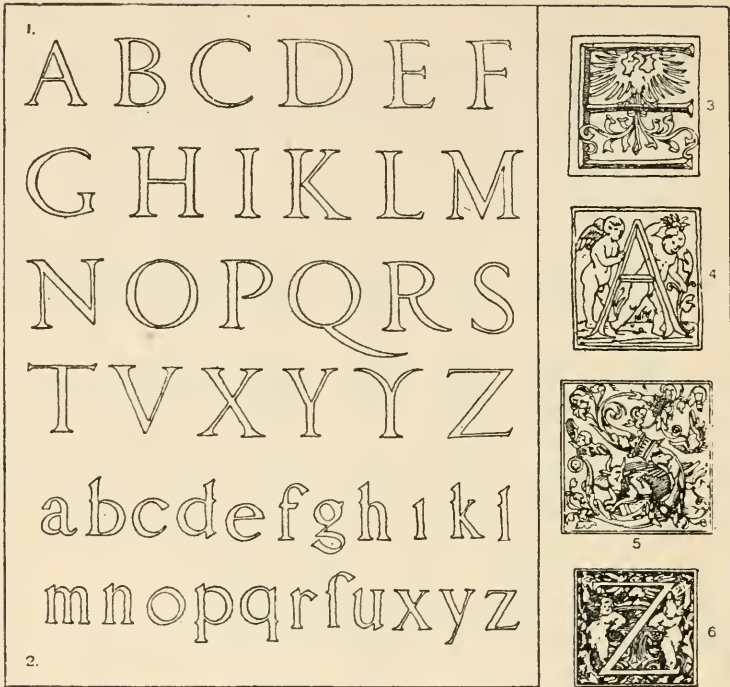 1.
A B C D E F
G H I K L M
N O P Q R S
T V X Y Y Z
a b c d e f g h ı k l
m n o p q r ſ u x y z
2.
E
3
A
4
5
Z
6